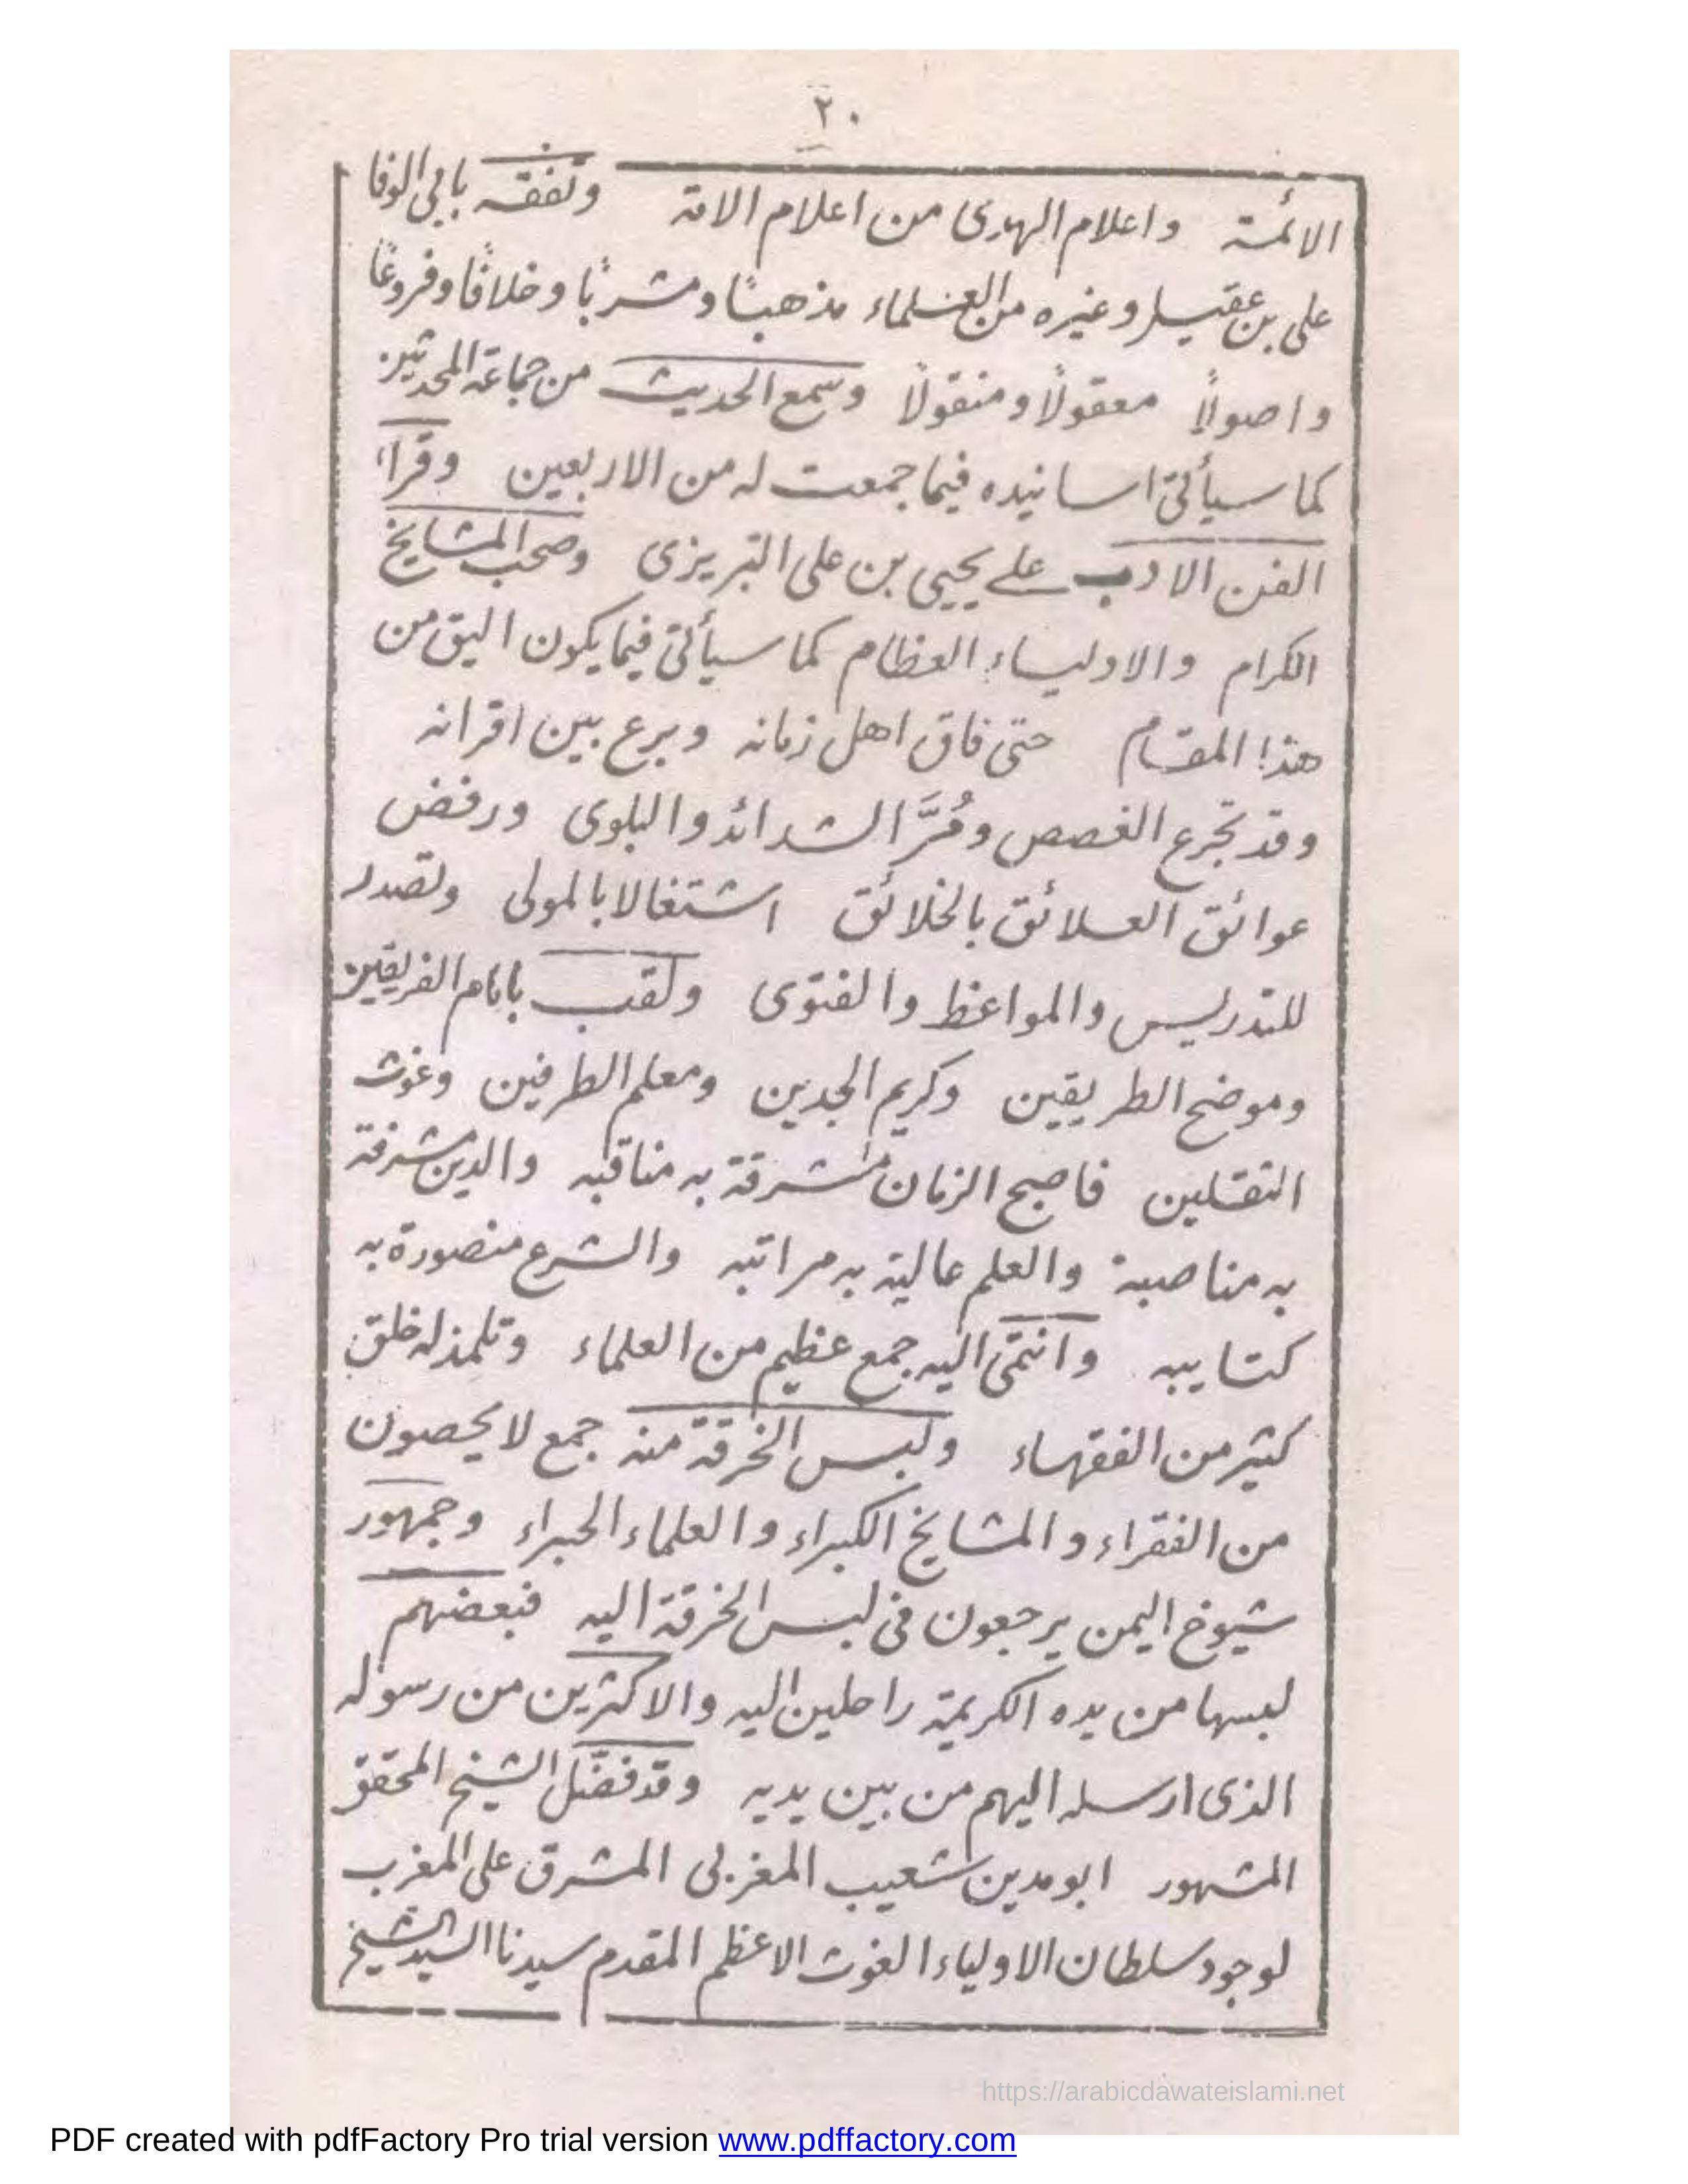 ٢٠
الائمة واعلام الهدى من اعلام الامة وتفقه بابى الوفا
على بن عقيل وغيره من العلماء مذهبًا ومشربًا وخلافًا وفروعًا
واصولًا معقولًا ومنقولًا وسمع الحديث من جماعة المحدثين
كما سيأتى اسانيده فيما جمعت له من الاربعين وقرأ
الفن الادب على يحيى بن على التبريزى وصحب المشايخ
الكرام والاولياء العظام كما سيأتى فيما يكون اليق من
هذا المقام حتى فاق اهل زمانه وبرع بين اقرانه
وقد تجرع الغصص ومُرَّ الشدائد والبلوى ورفض
عوائق العلائق بالخلائق اشتغالا بالمولى وتصدر
للتدريس والمواعظ والفتوى ولقب بامام الفريقين
وموضح الطريقين وكريم الجدين ومعلم الطرفين وغوث
الثقلين فاصبح الزمان مشرقة به مناقبه والدين مشرفة
به مناصبة والعلم عالية به مراتبه والشرع منصورة به
كتايبه وانتمى اليه جمع عظيم من العلماء وتلمذ له خلق
كثير من الفقهاء ولبس الخرقة منه جمع لا يحصون
من الفقراء والمشايخ الكبراء والعلماء الحبراء وجمهور
شيوخ اليمن يرجعون فى لبس الخرقة اليه فبعضهم
لبسها من يده الكريمة راحلين اليه والاكثرين من رسوله
الذى ارسله اليهم من بين يديه وقد فضّل الشيخ المحقق
المشهور ابو مدين شعيب المغربى المشرق على المغرب
لوجود سلطان الاولياء الغوث الاعظم المقدم سيدنا السيد الشيخ
https://arabicdawateislami.net
PDF created with pdfFactory Pro trial version www.pdffactory.com